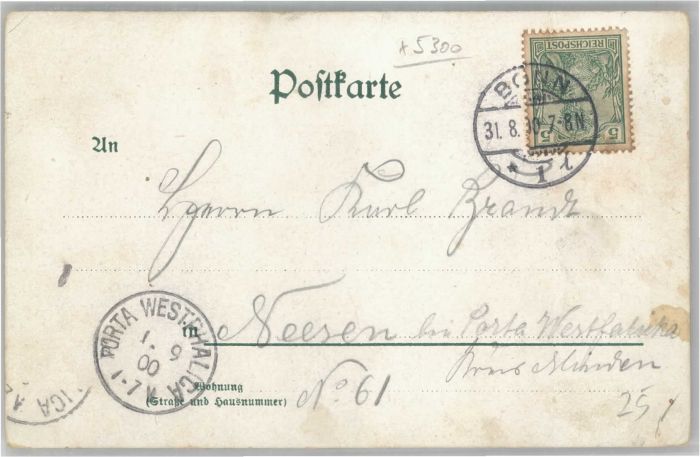 * 5300
Postkarte
REICHSPOST
5 5
BONN
31. 8. 00. 7-8N
* 1 t
An
Herrn Karl Brandt
PORTA WESTPHALICA
1. 9
00
1-7 N
in Neesen bei Porta Westfalika
Kreis Minden
Wohnung
(Straße und Hausnummer)
No 61
ICA
25